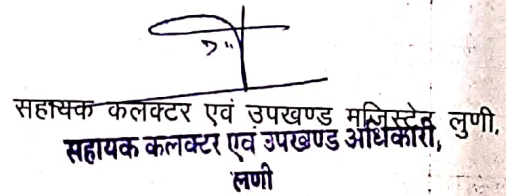 सहायक कलक्टर एवं उपखण्ड मजिस्ट्रेट, लुणी,
सहायक कलक्टर एवं उपखण्ड अधिकारी,
लणी